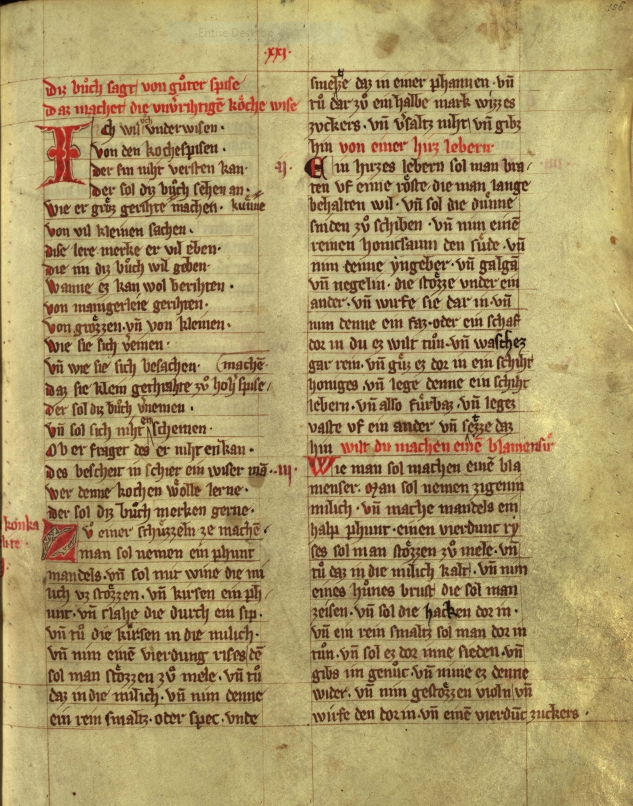 .xxi.
Diz bůch sagt von gůter spise
daz machet die vnv̊rihtigē kőche wise
ICh wil ůch vnderwisen.
von den kochespisen.
der sin niht versten kan.
der sol diz bůch sehen an.
wie er groz gerihte machen. kűnne
von vil kleinen sachen.
dise lere merke er vil eben.
die im diz bůch wil geben.
wanne ez kan wol berihten.
von manigerleie gerihten.
von grőzzen. vn̄ von kleinen.
wie sie sich vereinen.
vn̄ wie sie sich besachen. machē
daz sie klein gerihte zů hoh spise
der sol diz bůch vernemen.
vn̄ sol sich niht enschemen.
Ob er fraget des er niht enkan.
des bescheit in schier ein wiser mā.
wer denne kochen wőlle lerne.
der sol diz bůch merken gerne.
konka
vite
Zv einer schűzzeln ze machē.
man sol nemen ein phunt
mandels. vn̄ sol mit wine die mi
lich vz stőzzen. vn̄ kirsen ein ph
unt. vn̄ slahe die durch ein sip.
vn̄ tů die kirsen in die milich.
vn̄ nim einē vierdung rises dē
sol man stőzzen zů mele. vn̄ tů
daz in die milich. vn̄ nim denne
ein rein smaltz. oder spec. vnde
smeltze daz in einer phannen. vn̄
tů dar zů ein halbe mark wizzes
zvckers. vn̄ v̓saltz niht vn̄ gibz
hin von einer hirz lebern
.ij.
Ein hirzes lebern sol man bra
ten vf eime rőste. die man lange
behalten wil. vn̄ sol die dunne
sniden zů schiben. vn̄ nim einē
reinen honicsaum den sűde. vn̄
nim denne yngeber. vn̄ galgā
vn̄ negelin. die stőzze vnder ein
ander. vn̄ wirfe sie dar in. vn̄
nim denne ein faz. oder ein schaf
dor in du ez wilt tůn. vn̄ waschez
gar rein. vn̄ gűz ez dor in ein schiht
honiges. vn̄ lege denne ein schiht
lebern. vn̄ also fűrbaz. vn̄ legez
vaste vf ein ander vn̄ setze daz
hin wilt du machen einē blamensir
.iij.
Wie man sol machen einē bla
menser. Man sol nemen zigenin
milich. vn̄ mache mandels ein
halp phunt. einen vierdunc ry
ses sol man stőzzen zů mele. vn̄
tů daz in die milich kalt. vn̄ nim
eines hůnes brust die sol man
zeisen. vn̄ sol die hacken dor in.
vn̄ ein rein smaltz sol man dor in
tůn. vn̄ sol ez dor inne sieden. vn̄
gibs im genůc. vn̄ nime ez denne
wider. vn̄ nim gestőzzen violn vn̄
wirfe den dor in. vn̄ einē vierdūc zuckers.